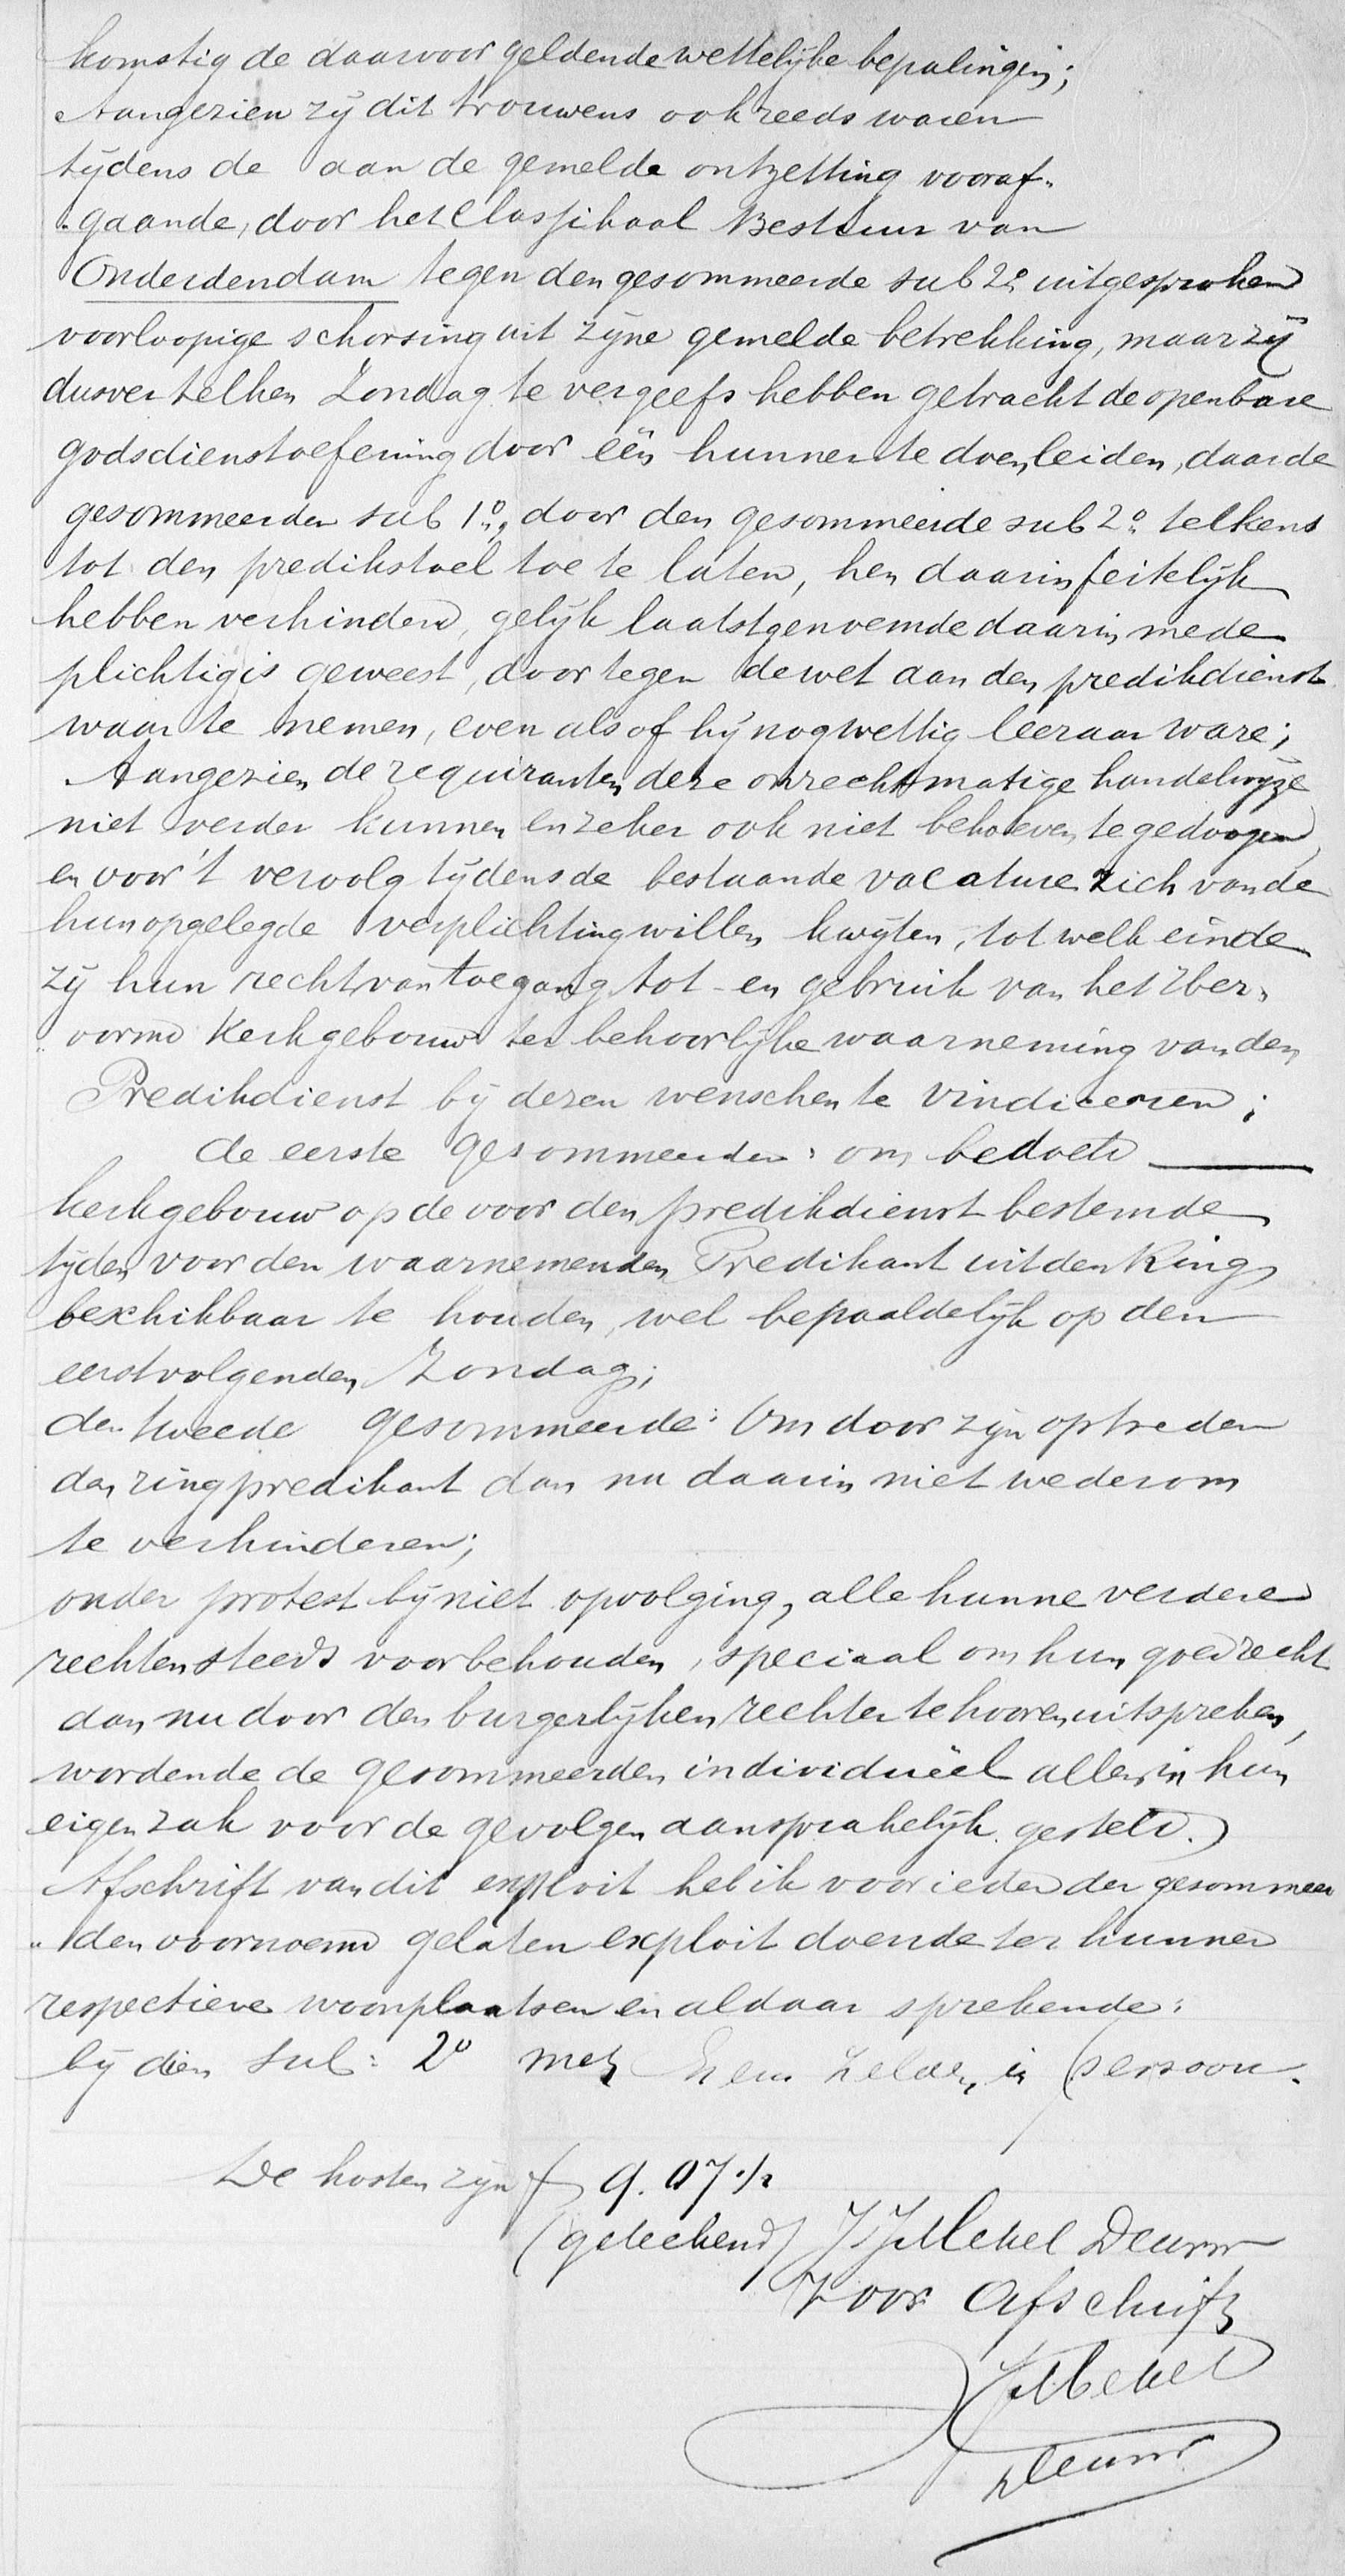 komstig de daarvoor geldende wettelijke bepalingen;
Aangezien zij dit trouwens ook reeds waren
tijdens de aan de gemelde ontzetting vooraf-
"gaande, door het Classikaal Bestuur van
Onderdendam tegen den gesommeerde sub 2º uitgesproken
voorloopige schorsing uit zijne gemelde betrekking, maar zij
dusver telken Zondag te vergeefs hebben getracht de openbare
godsdienstoefening door één hunner te doen leiden, daar de
gesommeerden sub 1º, door den gesommeerde sub 2º telkens
tot den predikstoel toe te laten, hen daarin feitelijk
hebben verhinderd, gelijk laatstgenoemde daarin mede
plichtig is geweest, door tegen de wet aan den predikdienst
waar te nemen, even alsof hij nog wettig leeraar ware;
Aangezien de requiranten deze onrechtmatige handelwijze
niet verder kunnen en zeker ook niet behoeven te gedoogen,
en voor 't vervolg tijdens de bestaande vacature zich van de
hun opgelegde verplichting willen kwijten, tot welk einde
zij hun recht van toegang tot - en gebruik van het Her-
"vormd Kerkgebouw ter behoorlijke waarneming van den
Predikdienst bij dezen wenschen te vindiceeren;
de eerste gesommeerden: om bedoeld
kerkgebouw op de voor den predikdienst bestemde
tijden voor den waarnemenden Predikant uit den Ring
beschikbaar te houden, wel bepaaldelijk op den
eerstvolgenden Zondag;
den tweede gesommeerde: Om door zijn optreden
den ringpredikant dan nu daarin niet wederom
te verhinderen;
onder protest bij niet opvolging, alle hunne verdere
rechten steeds voorbehouden, speciaal om hun goed recht
dan nu door den burgerlijken rechter te hooren uitspreken,
wordende de gesommeerden individueel allen in hun
eigen zak voor de gevolgen aansprakelijk gesteld.
Afschrift van dit exploit heb ik voor ieder der gesommeer
"den voornoemd gelaten exploit doende ter hunner
respectieve woonplaatsen en aldaar sprekende:
bij dien sub: 2º met hem zelven in persoon.
De kosten zijn f 9.07 ½
(geteekend) Mekel Deurw
Voor Afschrift
Mekel
Deurw